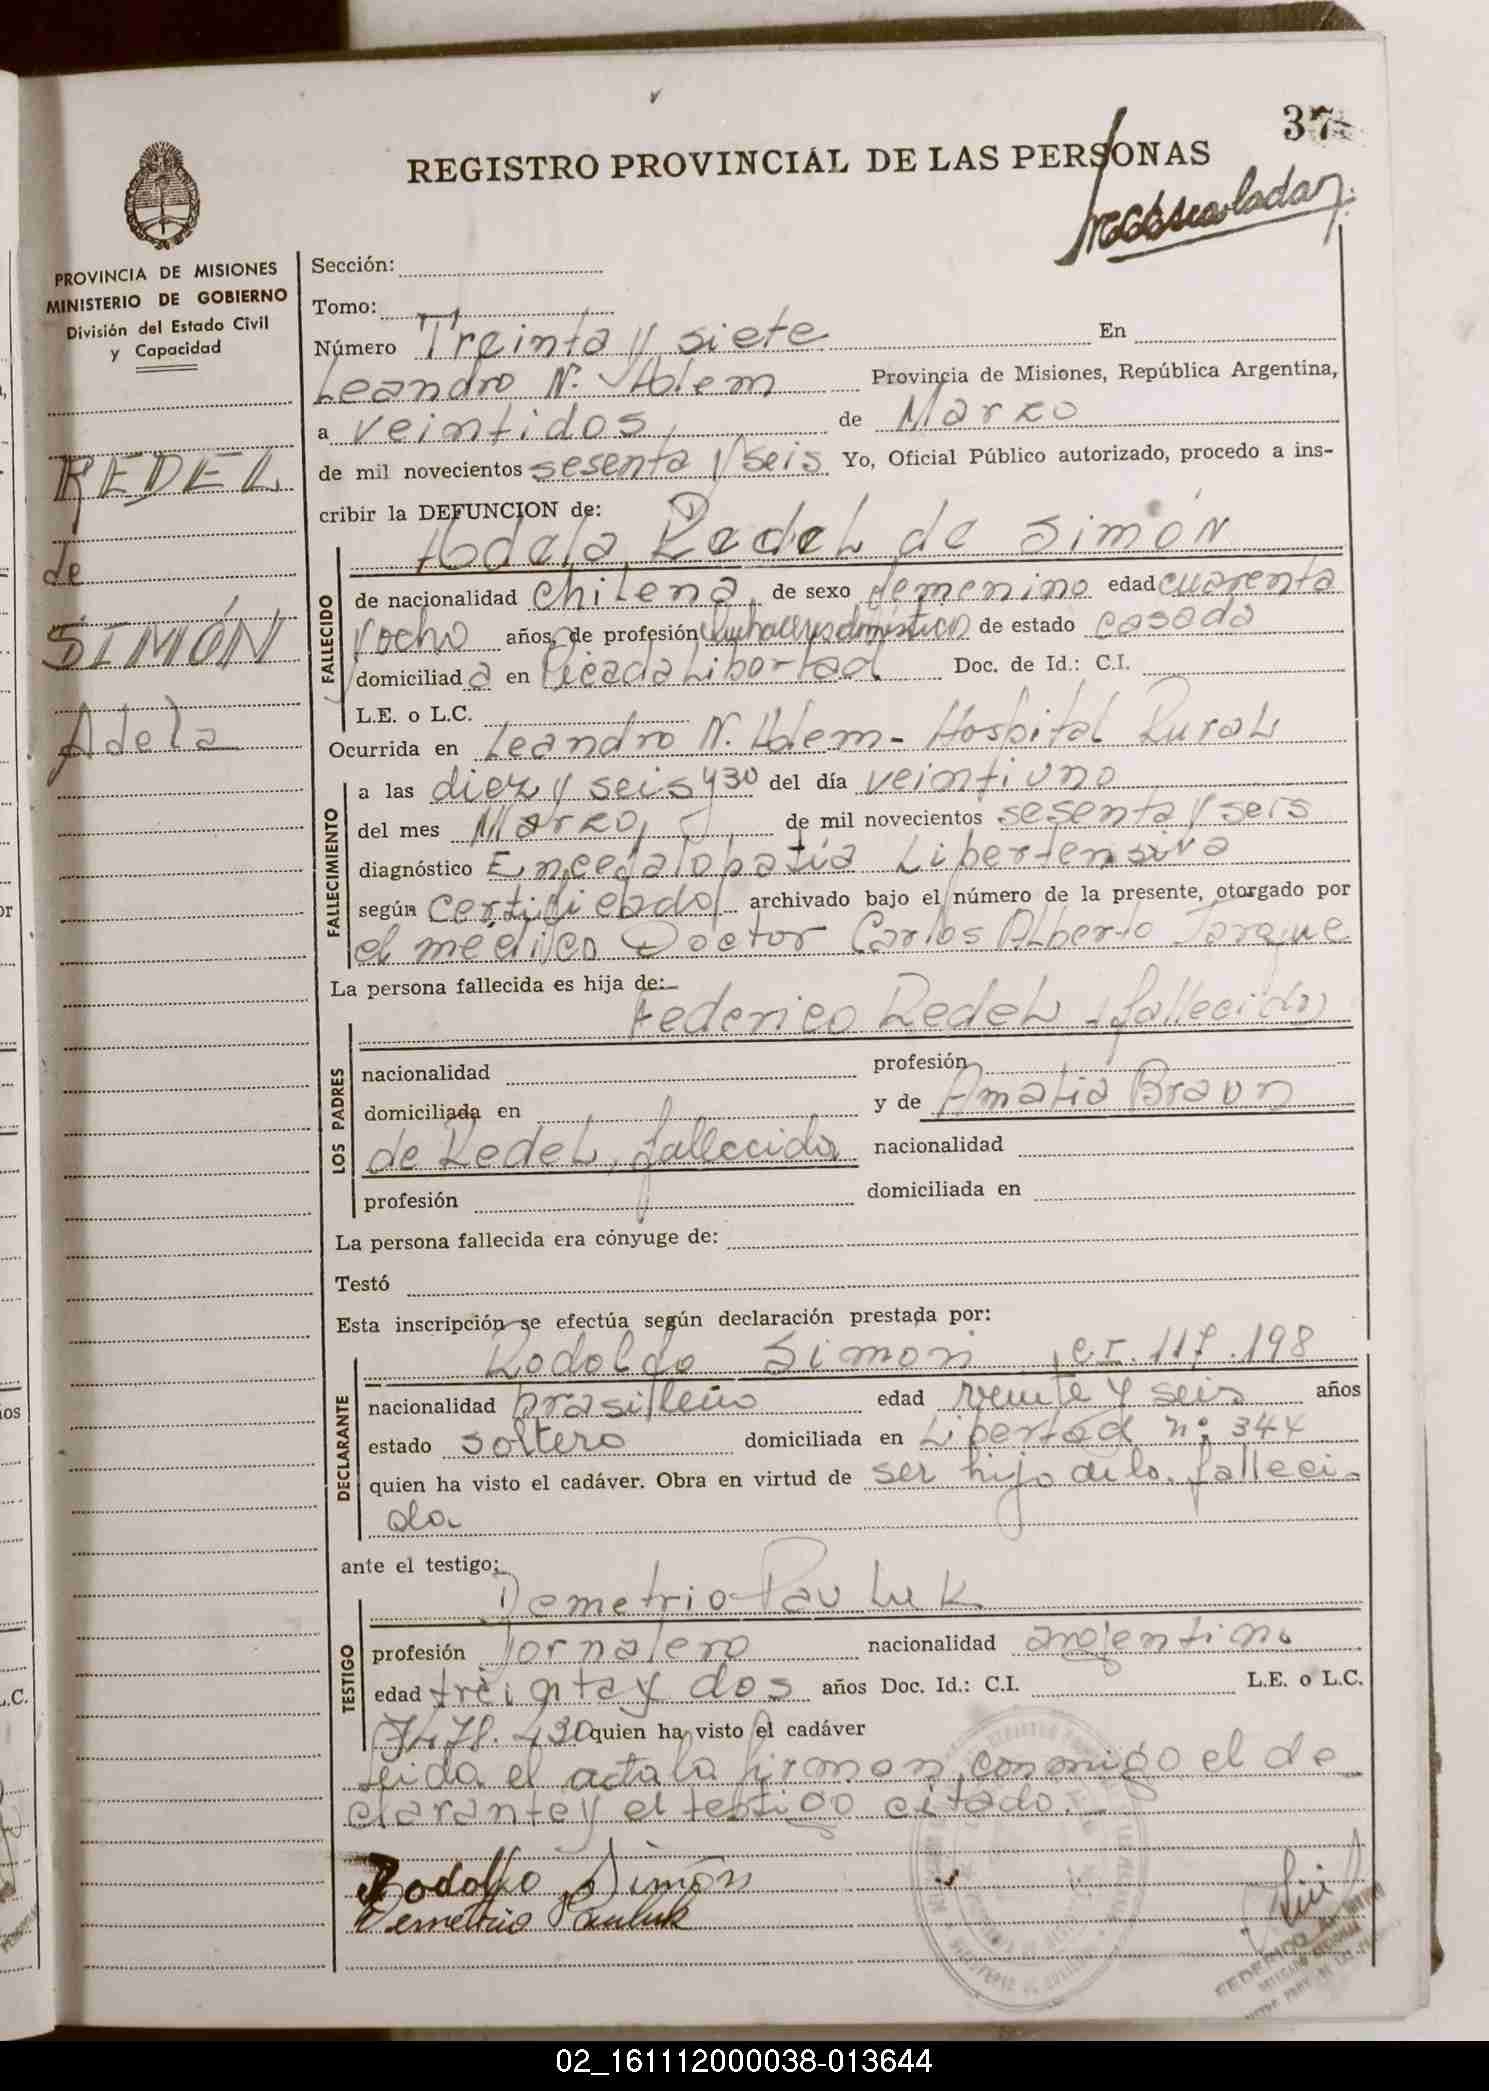 37
REGISTRO PROVINCIAL DE LAS PERSONAS
PROVINCIA DE MISIONES
MINISTERIO DE GOBIERNO
División del Estado Civil
y Capacidad
REDEL
de
SIMÓN
Adela
Sección:
Tomo:
Número Treinta y siete En
Leandro N. Alem Provincia de Misiones, República Argentina,
a veintidos de Marzo
de mil novecientos sesenta y seis Yo, Oficial Público autorizado, procedo a ins-
cribir la DEFUNCION de:
Adela Redel de Simón
FALLECIDO
de nacionalidad chilena, de sexo femenino edad cuarenta
y ocho años, de profesión quehaceres domésticos de estado casada
domiciliada en Picada Libertad Doc. de Id.: C.I.
L.E. o L.C.
Ocurrida en Leandro N. Alem - Hospital Rural
FALLECIMIENTO
a las diez y seis y 30 del día veintiuno
del mes Marzo, de mil novecientos sesenta y seis
diagnóstico Encefalopatía Lipertensiva
según certificado archivado bajo el número de la presente, otorgado por
el medico Doctor Carlos Alberto
La persona fallecida es hija de:
LOS PADRES
Federico Redel, fallecido
nacionalidad profesión
domiciliada en y de Amalia Braun
de Redel, fallecida nacionalidad
profesión domiciliada en
La persona fallecida era cónyuge de:
Testó
Esta inscripción se efectúa según declaración prestada por:
DECLARANTE
Rodolfo Simon, C.I. 117.198
nacionalidad brasilleño edad veinte y seis años
estado soltero domiciliada en Libertad nº 344
quien ha visto el cadáver. Obra en virtud de ser hijo de la falleci-
da
ante el testigo:
TESTIGO
Demetrio Pauluk
profesión Jornalero nacionalidad argentino
edad treinta y dos años Doc. Id.: C.I. L.E. o L.C.
7.478.430 quien ha visto el cadáver
Leida el acta la firman conmigo el de-
clarante y el testigo citado.
Rodolfo Simón
Demetrio Pauluk
FEDERICO
02_161112000038-013644